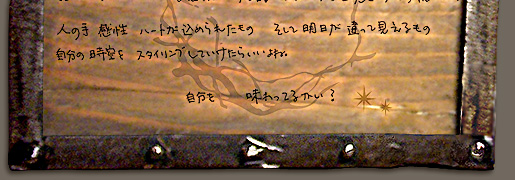 人の手 感性 ハートが込められたもの そして明日が違って見えるもの
自分の時空を スタイリングしていけたらいいよね。
自分を 味わってるかい?